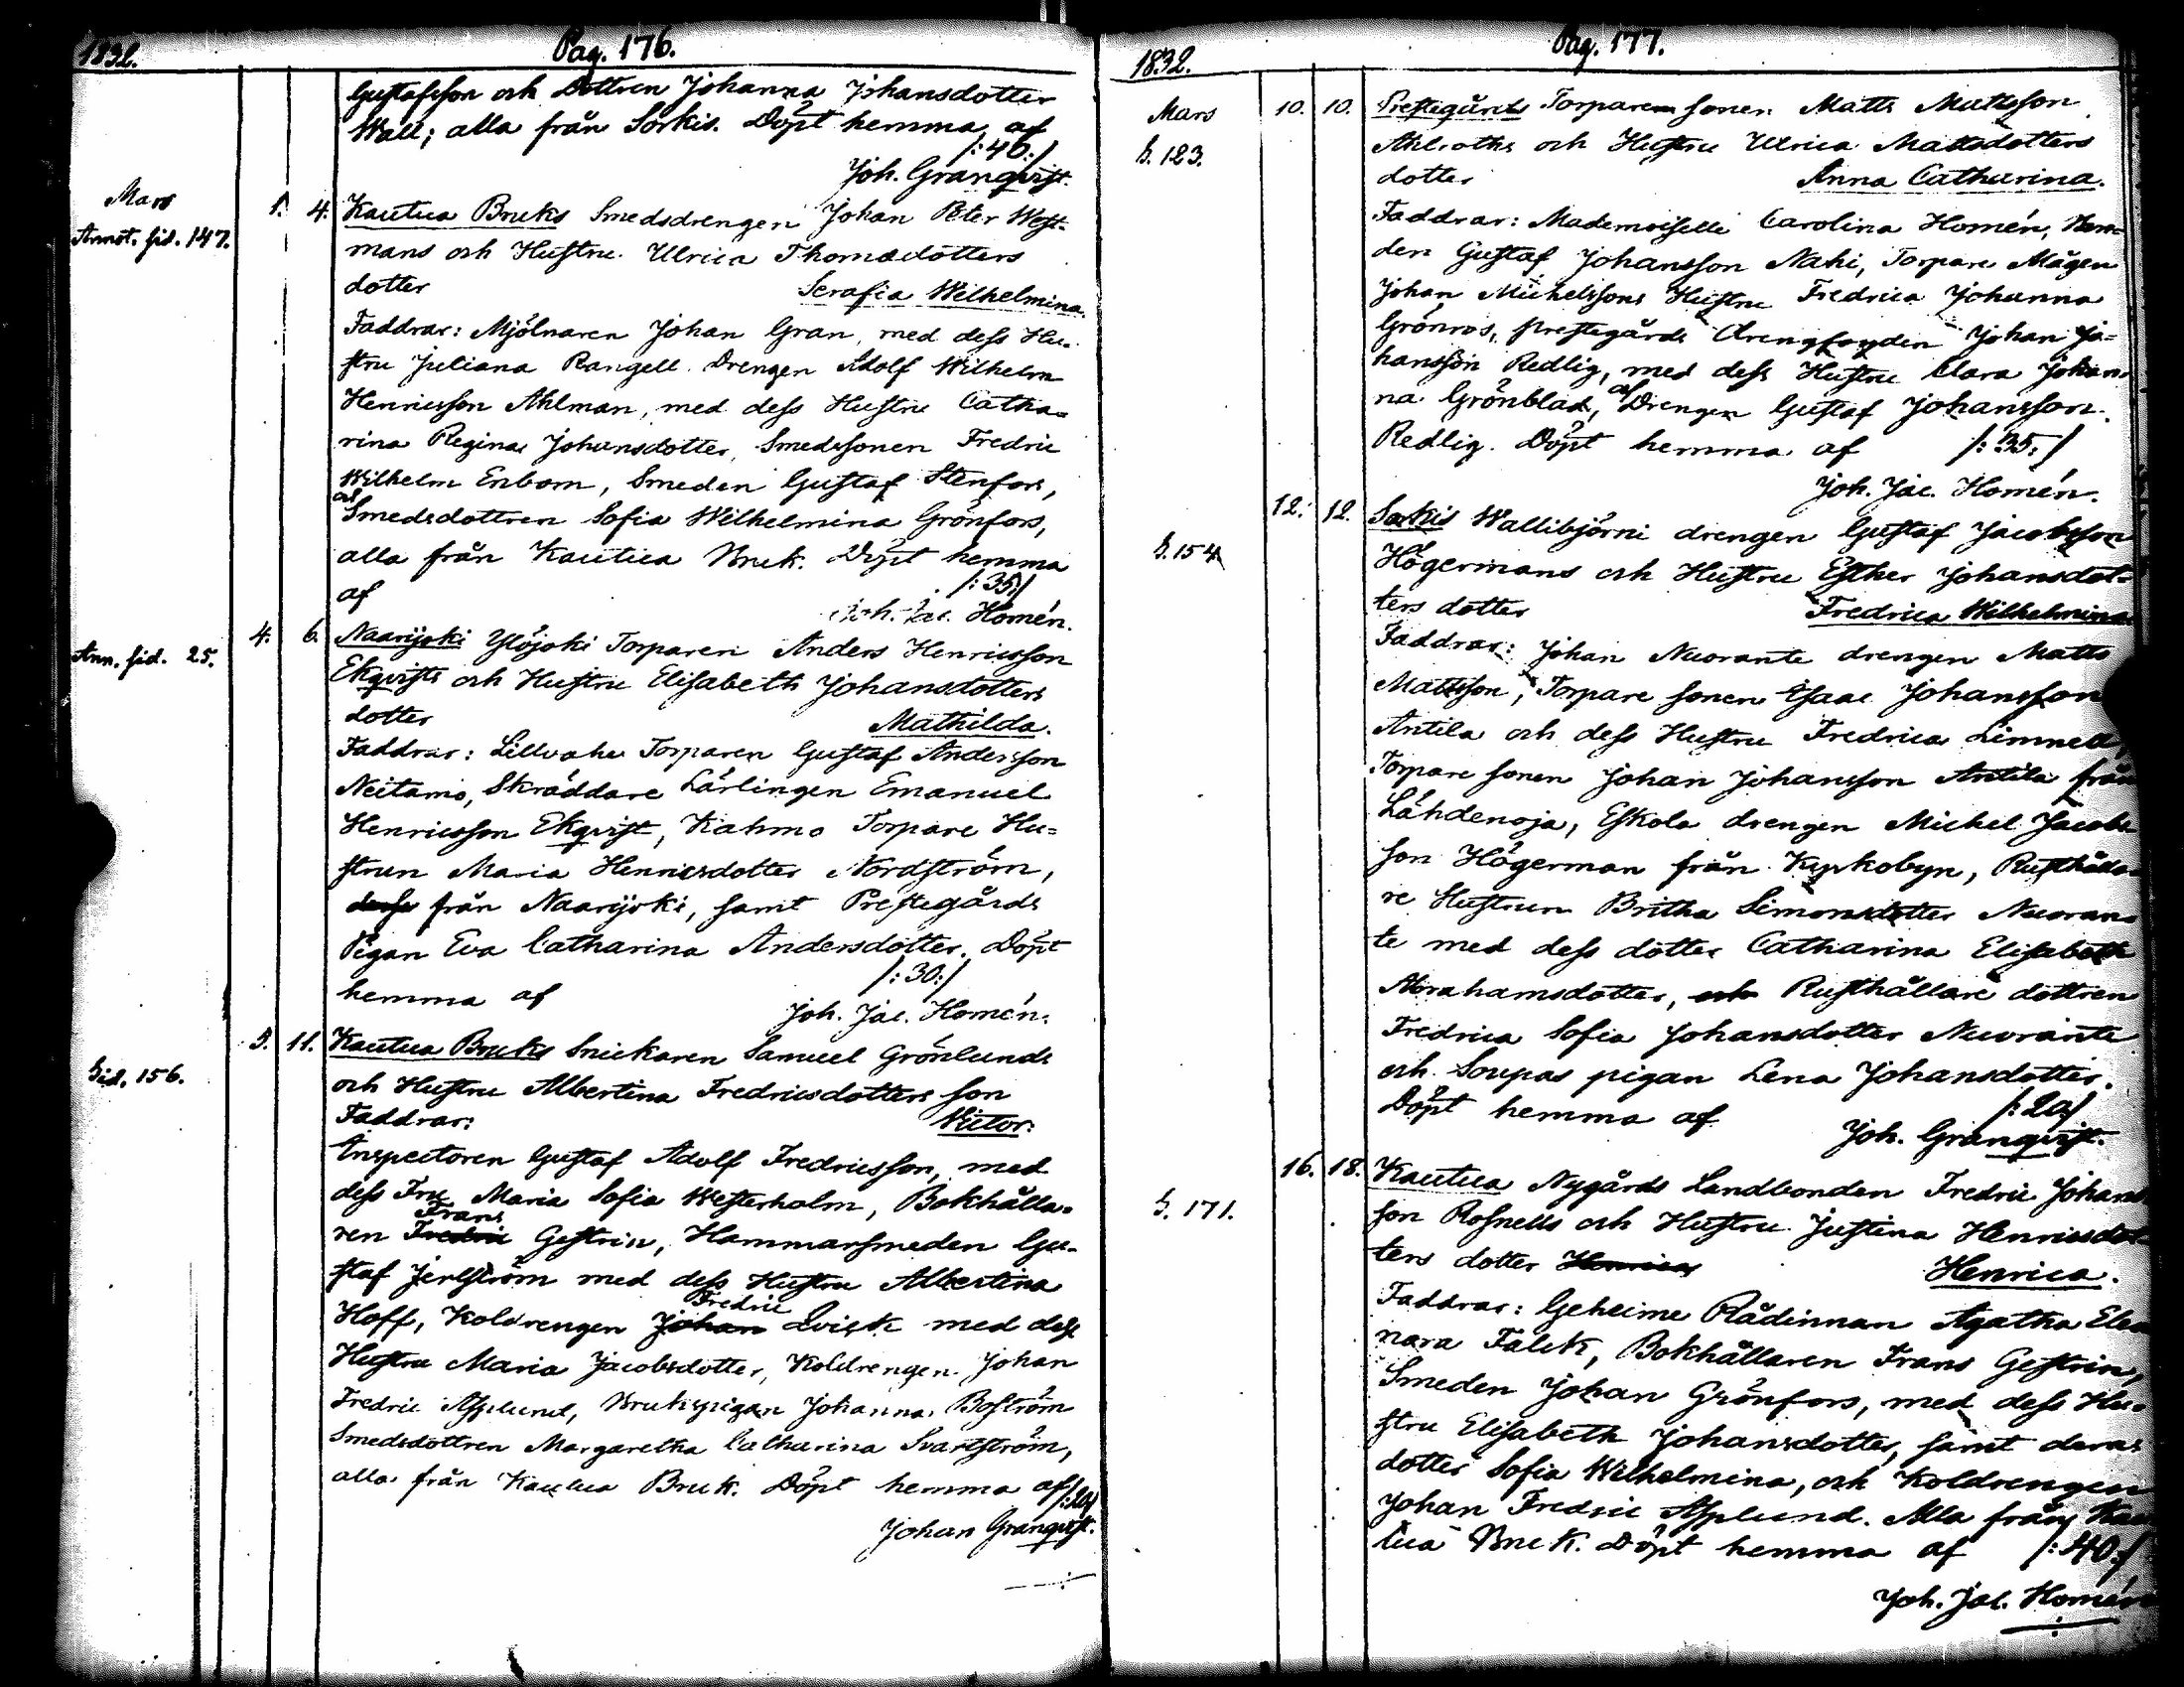 1832.
Pag. 176.
Gustafsson och Dottren Johanna Johansdotter
Wall; alla från Sorkis. Döpt hemma af
/:40:/
Joh. Granqvist.
Mars
Annot. sid. 147.
1. 4. Kautua Bruks Smedsdrengen Johan Peter West-
mans och Hustru Ulrica Thomasdotters
dotter Serafia Wilhelmina.
Faddrar: Mjölnaren Johan Gran, med dess Hu-
stru Juliana Rangell. Drengen Adolf Wilhelm
Henricsson Ahlman, med dess Hustru Catha-
rina Regina Johansdotter, Smedssonen Fredric
Wilhelm Enbom, Smeden Gustaf Stenfors,
och
Smedsdottren Sofia Wilhelmina Grönfors,
alla från Kautua Bruk. Döpt hemma
/:35:/
af Joh. Jac. Homén.
Ann. sid. 25.
4. 6. Naarijoki Ylöjoki Torparen Anders Henricsson
Ekqvists och Hustru Elisabeth Johansdotters
dotter Mathilda.
Faddrar: Lillvahe Torparen Gustaf Andersson
Neitamo, Skräddare Lärlingen Emanuel
Henricsson Ekqvist, Kahmo Torpare Hu-
strun Maria Henricsdotter Nordström,
från Naarijoki, samt Prestegårds
Pigan Eva Catharina Andersdotter. Döpt
/:30:/
hemma af
Joh. Jac. Homén.
Sid. 156.
9. 11. Kautua Bruks Snickaren Samuel Grönlunds
och Hustru Albertina Fredricsdotters son
Faddrar: Victor.
Inspectoren Gustaf Adolf Fredricsson, med
dess Fru Maria Sofia Westerholm, Bokhålla-
Frans
ren Fredric Gestrin, Hammarsmeden Gu-
staf Jerlström med dess Hustru Albertina
Fredric
Hoff, Koldrengen Johan Qvick med dess
Hustru Maria Jacobsdotter, Koldrengen Johan
Fredric Asplund, Brukspigan Johanna Boström
Smedsdottren Margaretha Catharina Svartström,
alla från Kautua Bruk. Döpt hemma af /:20:/
Johan Granqvist.
1832.
Pag. 177.
Mars
S. 123.
10. 10. Prestegårds Torparen sonen Matts Mattsson
Ahlroths och Hustru Ulrica Mattsdotters
dotter Anna Catharina.
Faddrar: Mademoiselle Carolina Homén, Bon-
den Gustaf Johansson Nahi, Torpare Mågen
Johan Michelssons Hustru Fredrica Johanna
Grönroos, prestegårds Drengfogden Johan Jo-
hansson Redlig, med dess Hustru Clara Johan-
och
na Grönblad, Drengen Gustaf Johansson
Redlig. Döpt hemma af /:35:/
Joh. Jac. Homén.
S. 154
12. 12. Sorkis Wallibjörni drengen Gustaf Jacobsson
Högermans och Hustru Esther Johansdot-
ters dotter Fredrica Wilhelmina
Faddrar: Johan Nuorante drengen Matts
Mattsson, Torpare sonen Isaac Johansson
Antila och dess Hustru Fredrica Limned,
Torpare sonen Johan Johansson Antila från
Lähdenoja, Eskola drengen Michel Jacobs-
son Högerman från Kyrkobyn, Rusthålla-
re Hustrun Britha Simonsdotter Nuoran-
te med dess dotter Catharina Elisabeth
Abrahamsdotter, och Rusthållare dottren
Fredrica Sofia Johansdotter Nuorante
och Soupas pigan Lena Johansdotter.
Döpt hemma af /:20:/
Joh. Granqvist.
S. 171.
16. 18. Kautua Nygårds Landbonden Fredric Johans
son Rosnells och Hustru Justina Henricsdot-
ters dotter Henrica Henrica.
Faddrar: Geheime Rådinnan Agatha Eleo
nora Falck, Bokhållaren Frans Gestrin,
Smeden Johan Grönfors, med dess Hu-
stru Elisabeth Johansdotter, samt deras
dotter Sofia Wilhelmina, och Koldrengen
Johan Fredric Asplund. Alla från Kau
tua Bruk. Döpt hemma af /:40:/
Joh. Jac. Homén